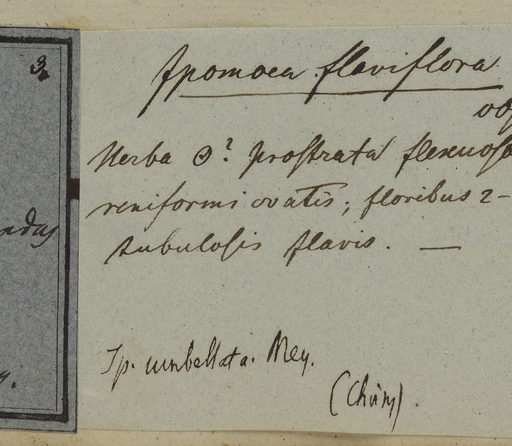 3.
Ipomoea flaviflora
Herba ʘ? proſtrata flexuoſa
reniformi ovatis; floribus 2-
tubuloſis flavis. —
Ip. umbellata. Mey.